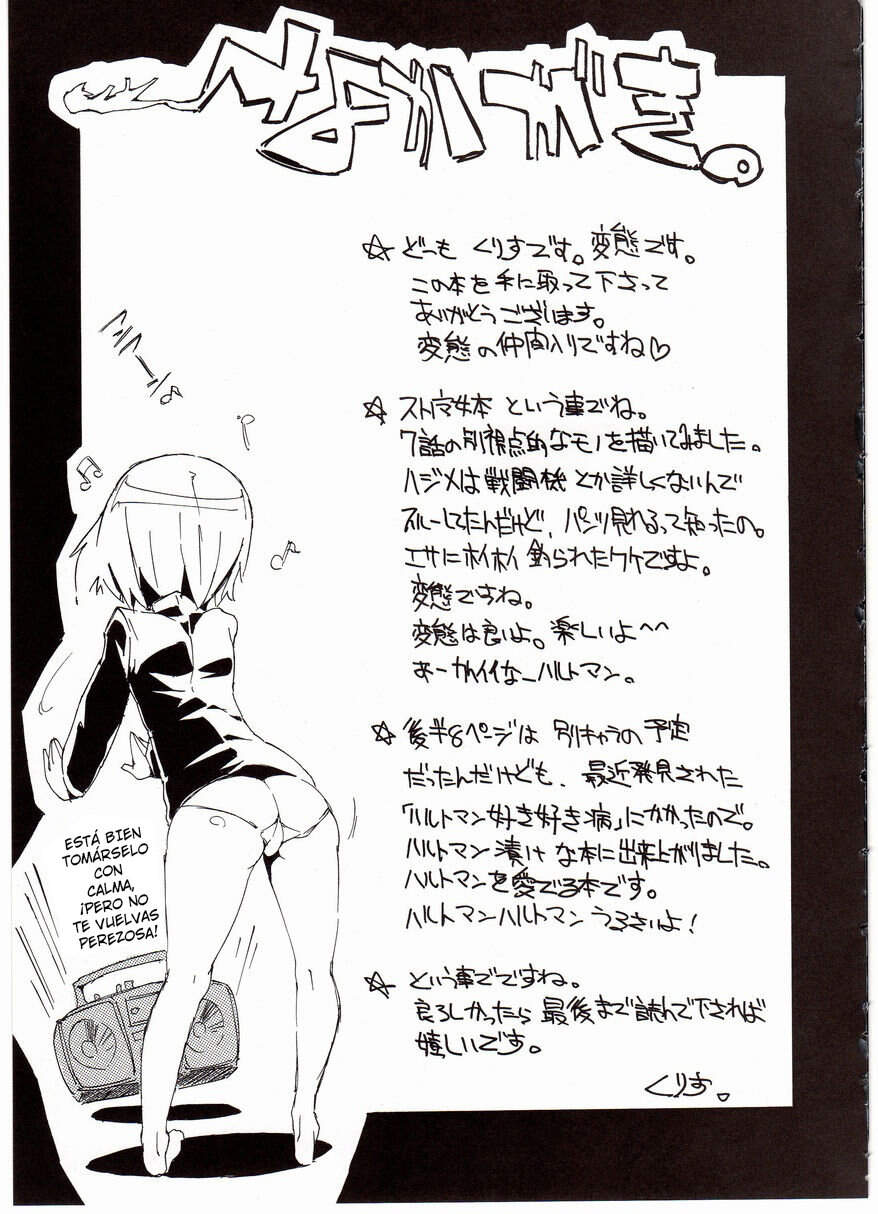 なかがき。
☆ どーも くりすです。変態です。
この本を手に取って下さって
ありがとうございます。
変態の仲間入りですね♡
☆ ストパン本 という事でね。
7話の別視点的なモノを描いてみました。
ハジメは戦闘機とか詳しくないんで
スルーしてたんだけど、パンツ見れるって知ったの。
エサにホイホイ釣られたワケですよ。
変態ですね。
変態は良いよ。楽しいよ^^
あーかわイイなーハルトマン。
☆ 後半8ページは 別キャラの予定
だったんだけども、最近発見された
「ハルトマン好き好き病」にかかったので。
ハルトマン漬けな本に出来上がりました。
ハルトマンを愛でる本です。
ハルトマンハルトマンうるさいよ!
☆ という事でですね。
良ろしかったら最後まで読んで下されば
嬉しいです。
くりす。
ESTÁ BIEN
TOMÁRSELO
CON
CALMA,
¡PERO NO
TE VUELVAS
PEREZOSA!